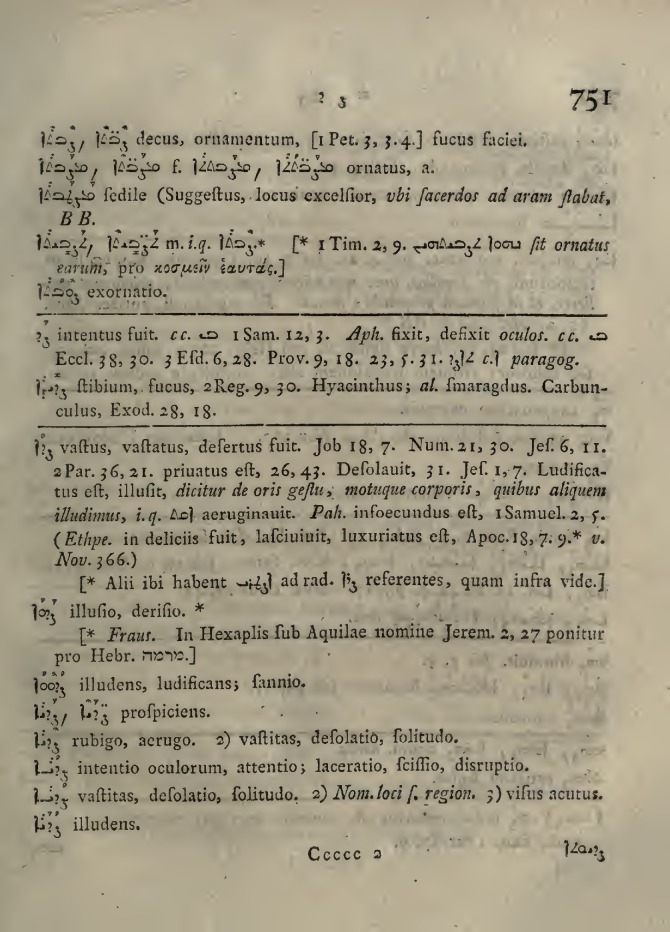 ܨ ܕ 751
ܨܒܬܐ, ܨܒ̈ܬܐ decus, ornamentum, [1 Pet. 3, 3.4.] fucus faciei.
ܡܨܒܬܐ, ܡܨܒ̈ܬܐ f. ܡܨܒܬܬܐ, ܡܨܒ̈ܬܬܐ ornatus, a.
ſedile (Suggeſtus, locus excelſior, ubi ſacerdos ad aram ſtabat,
B B.
ܬܨܒܝܬܐ, ܬܨܒ̈ܝܬܐ m. i. q. ܨܒܬܐ.* [* 1 Tim. 2, 9. ܢܗܘܐ ܬܨܒܝܬܗܝܢ ſit ornatus
earum, pro κοσμεῖν ἑαυτάς.]
ܨܘܒܬܐ exornatio.
ܨܕ intentus fuit. cc. ܒ 1 Sam. 12, 3. Aph. fixit, defixit oculos. cc. ܒ
Eccl. 38, 30. 3 Eſd. 6, 28. Prov. 9, 18. 23, 5. 31. ܬܐܨܕ c. ܐ paragog.
ܨܕܝܕܐ ſtibium, fucus, 2 Reg. 9, 30. Hyacinthus; al. ſmaragdus. Carbun-
culus, Exod. 28, 18.
ܨܕܐ vaſtus, vaſtatus, deſertus fuit. Job 18, 7. Num. 21, 30. Jeſ. 6, 11.
2 Par. 36, 21. priuatus eſt, 26, 43. Deſolauit, 31. Jeſ. 1, 7. Ludifica-
tus eſt, illuſit, dicitur de oris geſtu, motuque corporis, quibus aliquem
illudimus, i. q. aeruginauit. Pah. infoecundus eſt, 1 Samuel. 2, 5.
(Ethpe. in deliciis fuit, laſciuiuit, luxuriatus eſt, Apoc. 18, 7. 9.* v.
Nov. 366.)
[* Alii ibi habent ad rad. ܨܪܐ referentes, quam infra vide.]
ܨܕܘܐ illuſio, deriſio. *
[* Fraus. In Hexaplis ſub Aquilae nomine Jerem. 2, 27 ponitur
pro Hebr. מרמה.]
ܨܕܘܘܐ illudens, ludificans; ſannio.
ܨܕܝܐ, ܨܕ̈ܝܐ proſpiciens.
ܨܕܝܐ rubigo, aerugo. 2) vaſtitas, deſolatio, ſolitudo.
ܨܕܝܐ intentio oculorum, attentio; laceratio, ſciſſio, disruptio.
ܨܕܝܐ vaſtitas, deſolatio, ſolitudo. 2) Nom. loci ſ. region. 3) viſus acutus.
ܨܕܝܐ illudens.
Ccccc 2 ܨܕܝܘܬܐ